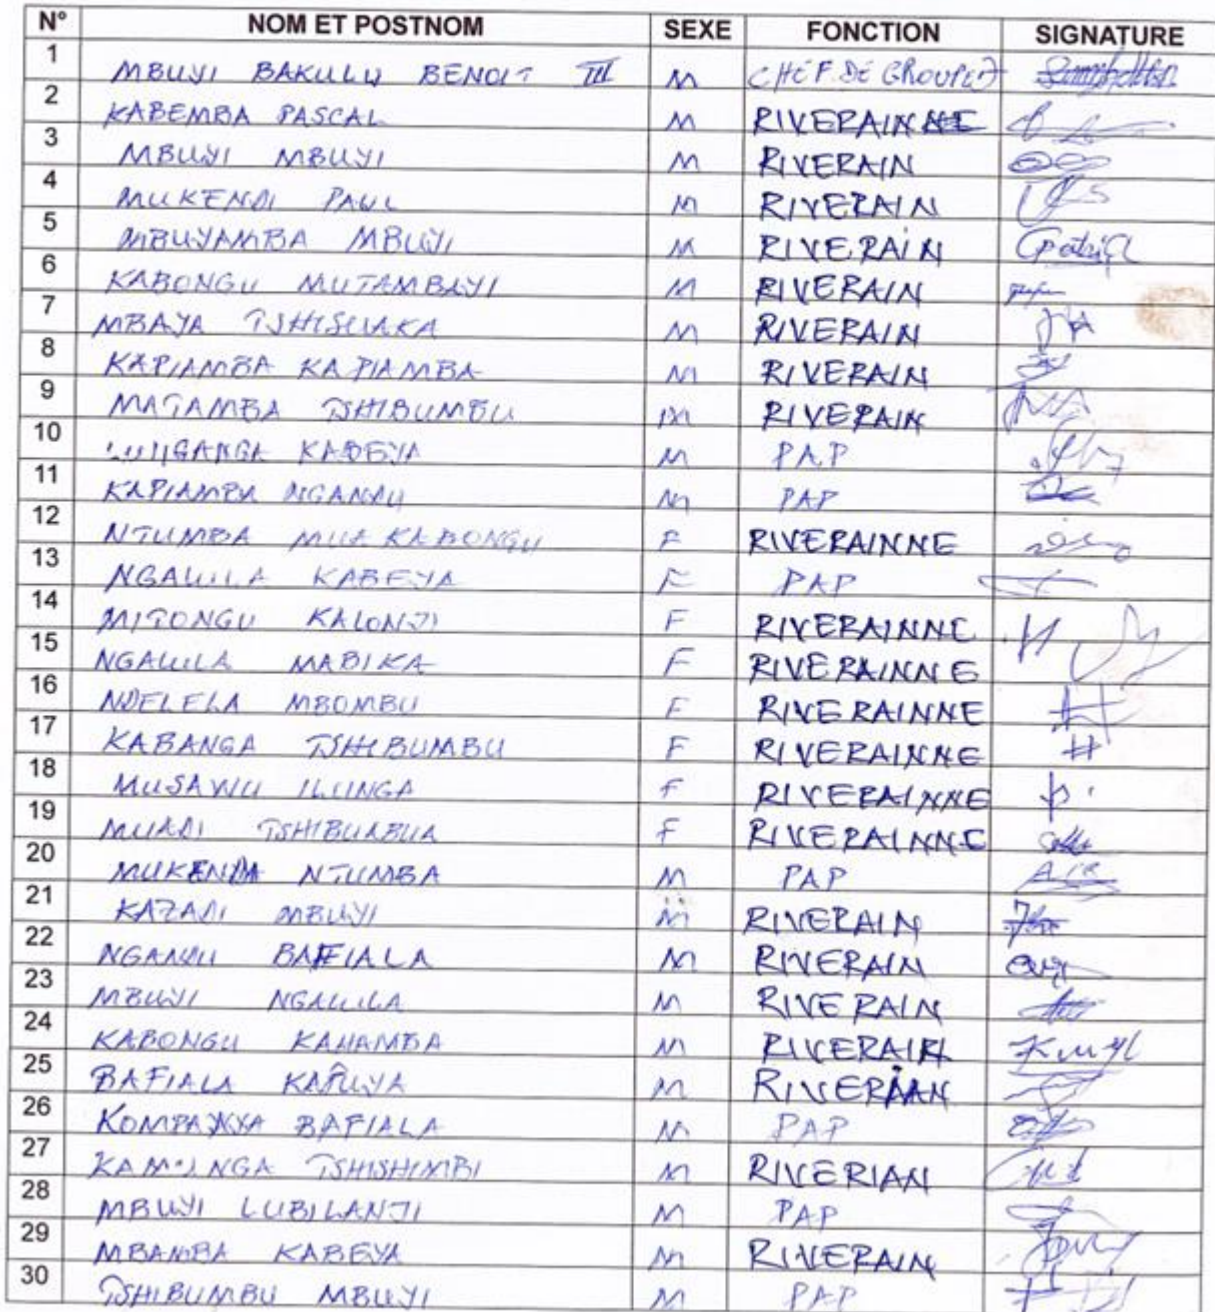 N° NOM ET POSTNOM SEXE FONCTION SIGNATURE
1 MBUYI BAKULU BENOIT III M CHEF DE GROUPET
2 KABEMBA PASCAL M RIVERAINNE
3 MBUYI MBUYI M RIVERAIN
4 MUKENDI PAUL M RIVERAIN
5 MBUYAMBA MBUYI M RIVERAIN Patrick
6 KABONGU MUTAMBAYI M RIVERAIN
7 MBAYA TSHISUAKA M RIVERAIN
8 KAPIAMBA KAPIAMBA M RIVERAIN
9 MATAMBA TSHIBUMBU M RIVERAIN
10 KABEYA M PAP
11 KAPIAMBA NGANDU M PAP
12 NTUMBA MUA KABONGU F RIVERAINNE
13 NGALULA KABEYA F PAP
14 MITONGU KALONJI F RIVERAINNE
15 NGALULA MABIKA F RIVERAINNE
16 NDELELA MBOMBU F RIVERAINNE
17 KABANGA TSHIBUMBU F RIVERAINNE
18 MUSAWU ILUNGA F RIVERAINNE
19 MUADI TSHIBUABUA F RIVERAINNE
20 MUKENDA NTUMBA M PAP
21 KAZADI MBUYI M RIVERAIN
22 NGANDU BAFIALA M RIVERAIN
23 MBUYI NGALULA M RIVERAIN
24 KABONGU KAHAMBA M RIVERAIN
25 BAFIALA KAPUYA M RIVERAIAN
26 KOMPANYA BAFIALA M PAP
27 TSHISHIMBI M RIVERIAN
28 MBUYI LUBILANJI M PAP
29 MBAMBA KABEYA M RIVERAIN
30 TSHIBUMBU MBUYI M PAP